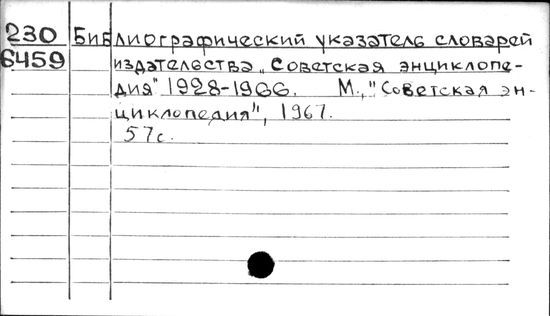 230 Библиографический указатель словарей
6459 издательства „Советская энциклопе-
дия" 1928-1966. М., "Советская эн-
циклопедия", 1967.
57с.